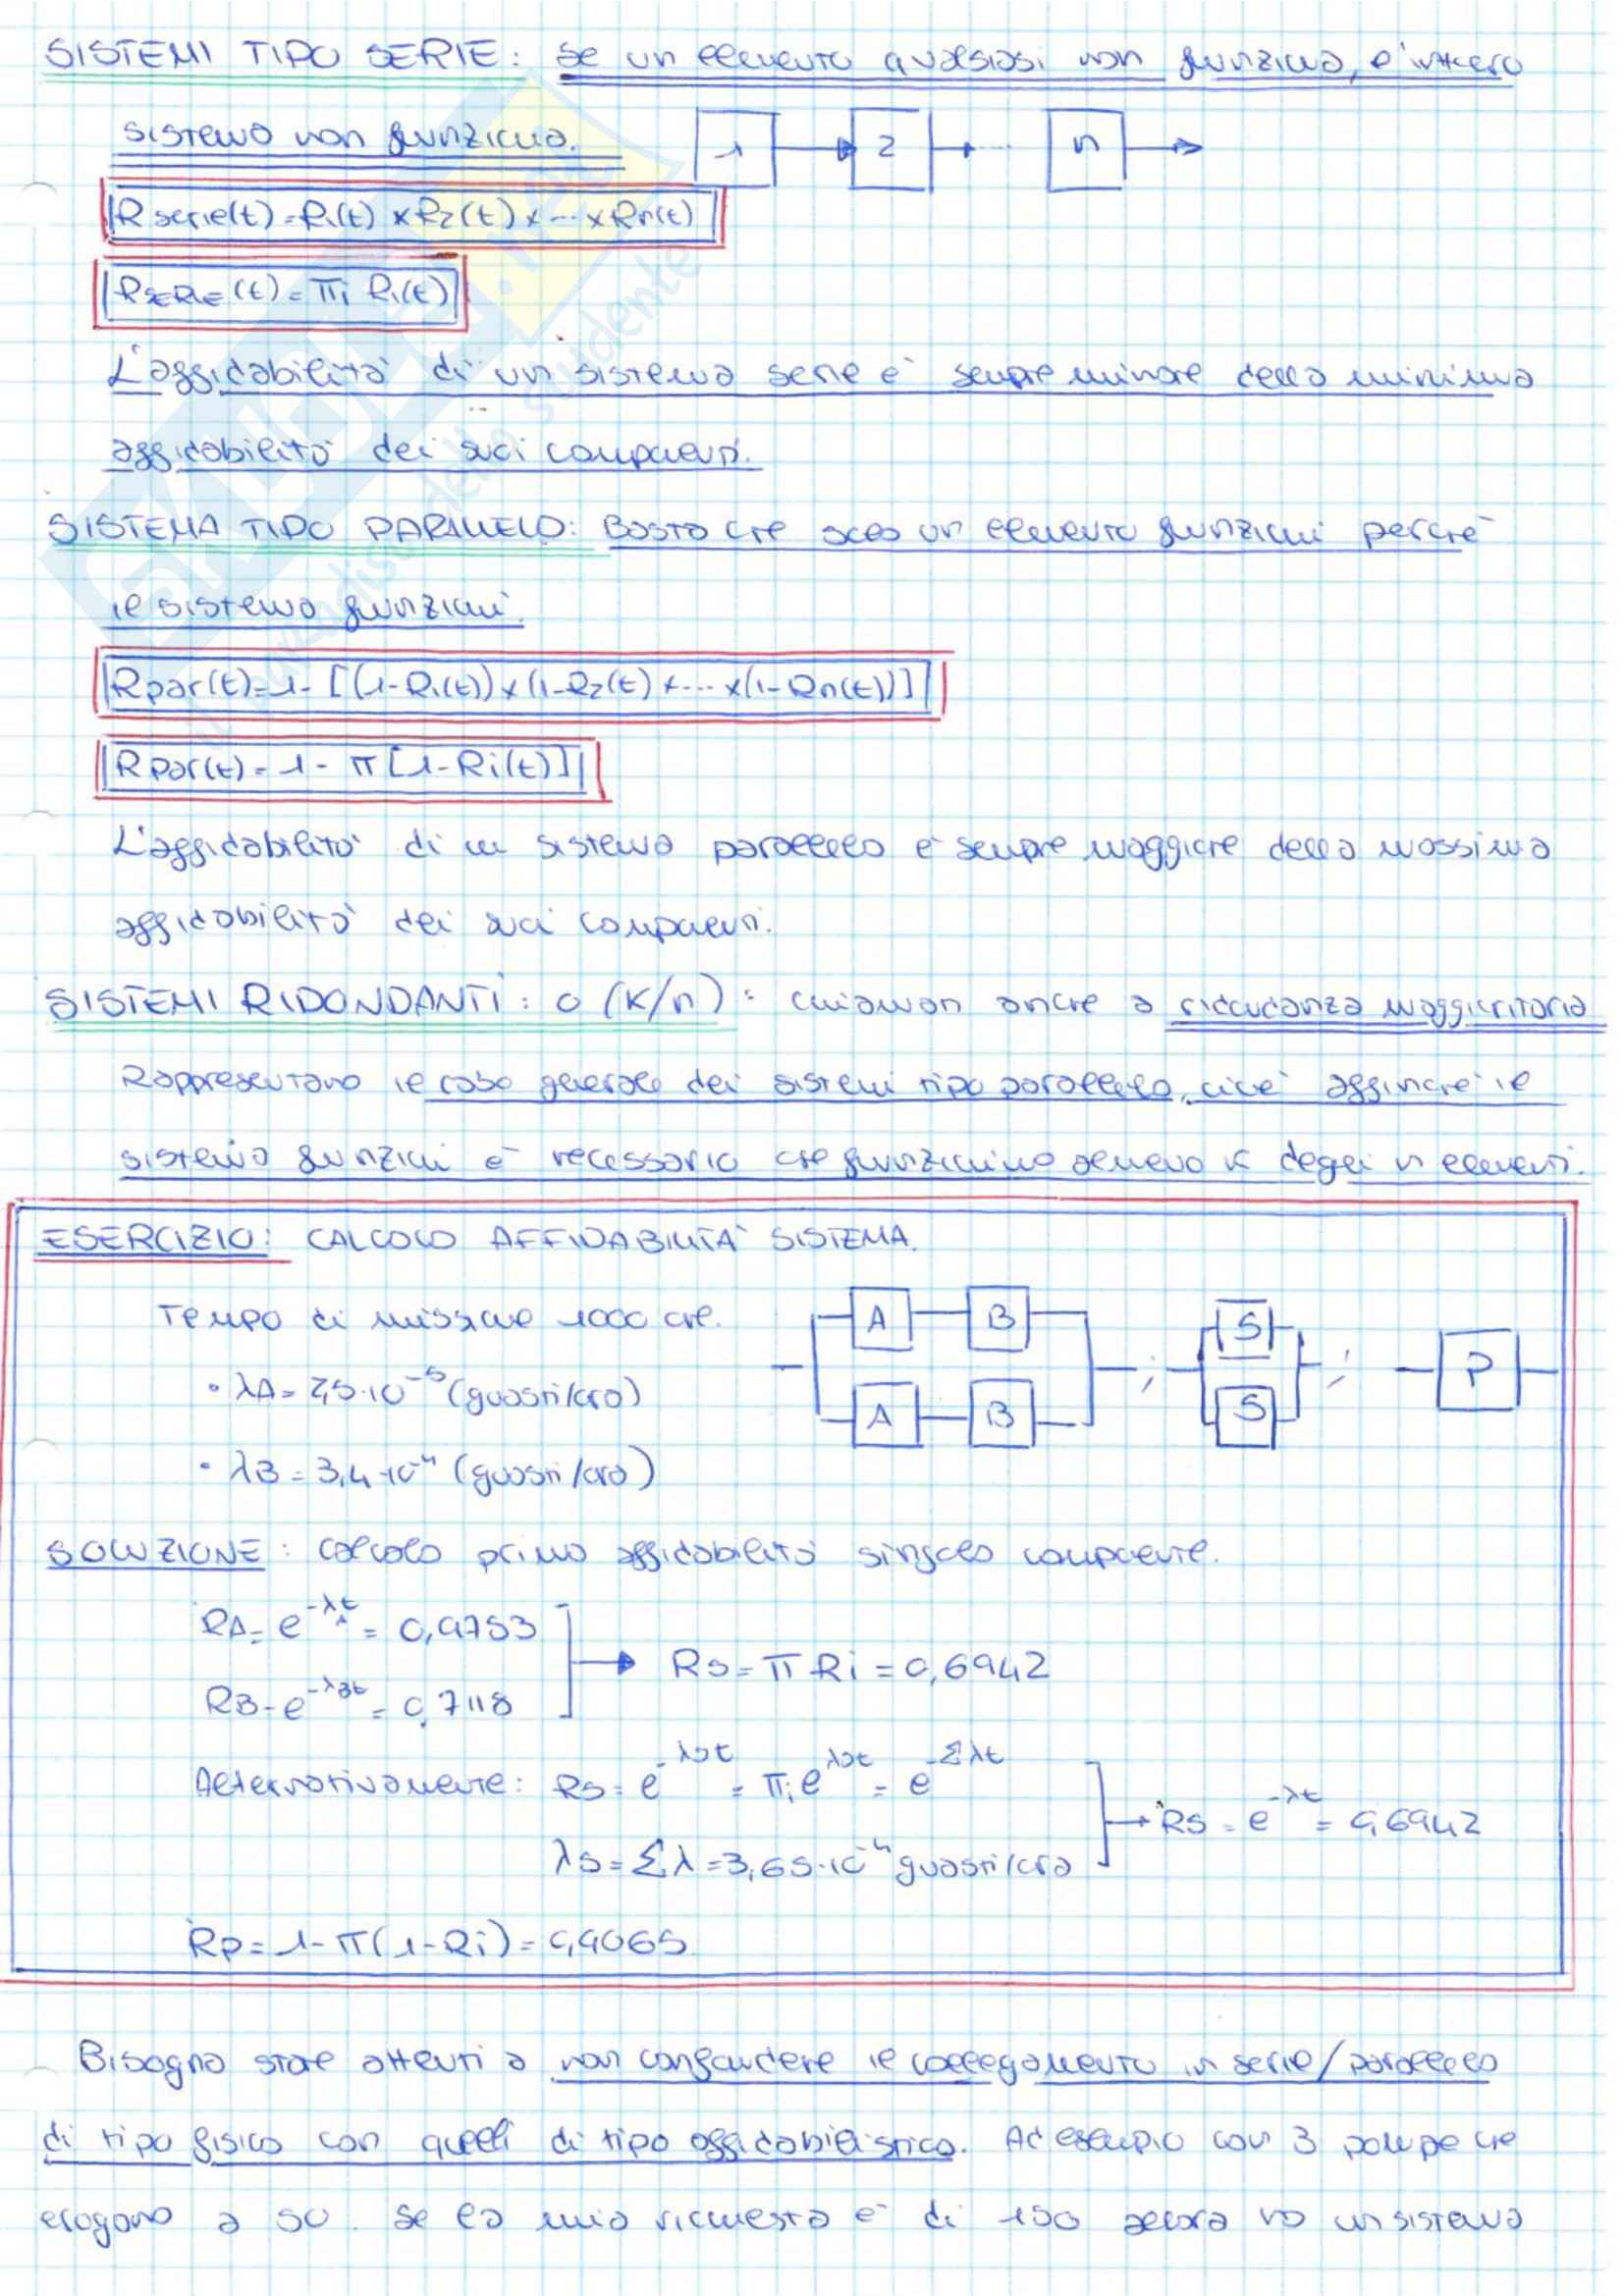 SISTEMI TIPO SERIE: se un elemento qualsiasi non funziona, l'intero
sistema non funziona.
1 2 n
Rserie(t)=R1(t) x R2(t) x ... x Rn(t)
RSERIE(t) = πi Ri(t)
L'affidabilità di un sistema serie è sempre minore della minima
affidabilità dei suoi componenti.
SISTEMA TIPO PARALLELO: Basta che solo un elemento funzioni perché
il sistema funzioni.
Rpar(t)=1-[(1-R1(t)) x (1-R2(t) x ... x (1-Rn(t))]
Rpar(t) = 1 - π [1-Ri(t)]
L'affidabilità di un sistema parallelo è sempre maggiore della massima
affidabilità dei suoi componenti.
SISTEMI RIDONDANTI: o (K/n): chiamati anche a ridondanza maggioritaria
Rappresentano il caso generale dei sistemi tipo parallelo, cioè affinché il
sistema funzioni è necessario che funzionino almeno k degli n elementi.
ESERCIZIO: CALCOLO AFFIDABILITÀ SISTEMA.
Tempo di missione 1000 ore.
A B
A B
; S S ; P
• λA = 2,5·10⁻⁵ (guasti/ora)
• λB = 3,4·10⁻⁴ (guasti/ora)
SOLUZIONE: calcolo prima affidabilità singolo componente.
RA = e^-λAt = 0,9753
RB = e^-λBt = 0,7118
Rs = π Ri = 0,6942
Alternativamente: Rs = e^-λst = πi e^λst = e^-Σλt
λs = Σλ = 3,65·10⁻⁴ guasti/ora
Rs = e^-λt = 0,6942
Rp = 1-π(1-Ri) = 0,9065
Bisogna stare attenti a non confondere il collegamento in serie/parallelo
di tipo fisico con quelli di tipo affidabilistico. Ad esempio con 3 pompe che
erogano a 50. Se la mia richiesta è di 150 allora ho un sistema
SKUOLA.net
il paradiso dello studente